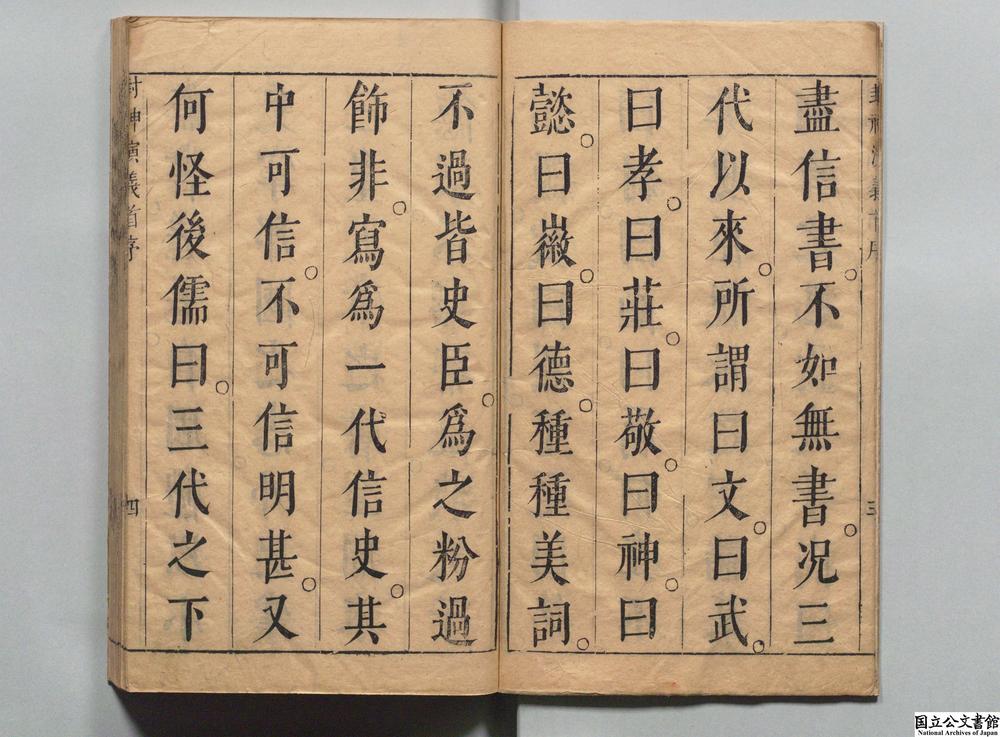 盡信書。不如無書。况三
代以來。所謂曰文。曰武。
曰孝。曰莊。曰敬。曰神。曰
懿。曰徽。曰德。種種美詞。
不過皆史臣。爲之粉過
飾非。寫爲一代信史。其
中可信。不可信明甚。又
何怪後儒曰。三代之下
封神演義首序
四
国立公文書館
National Archives of Japan